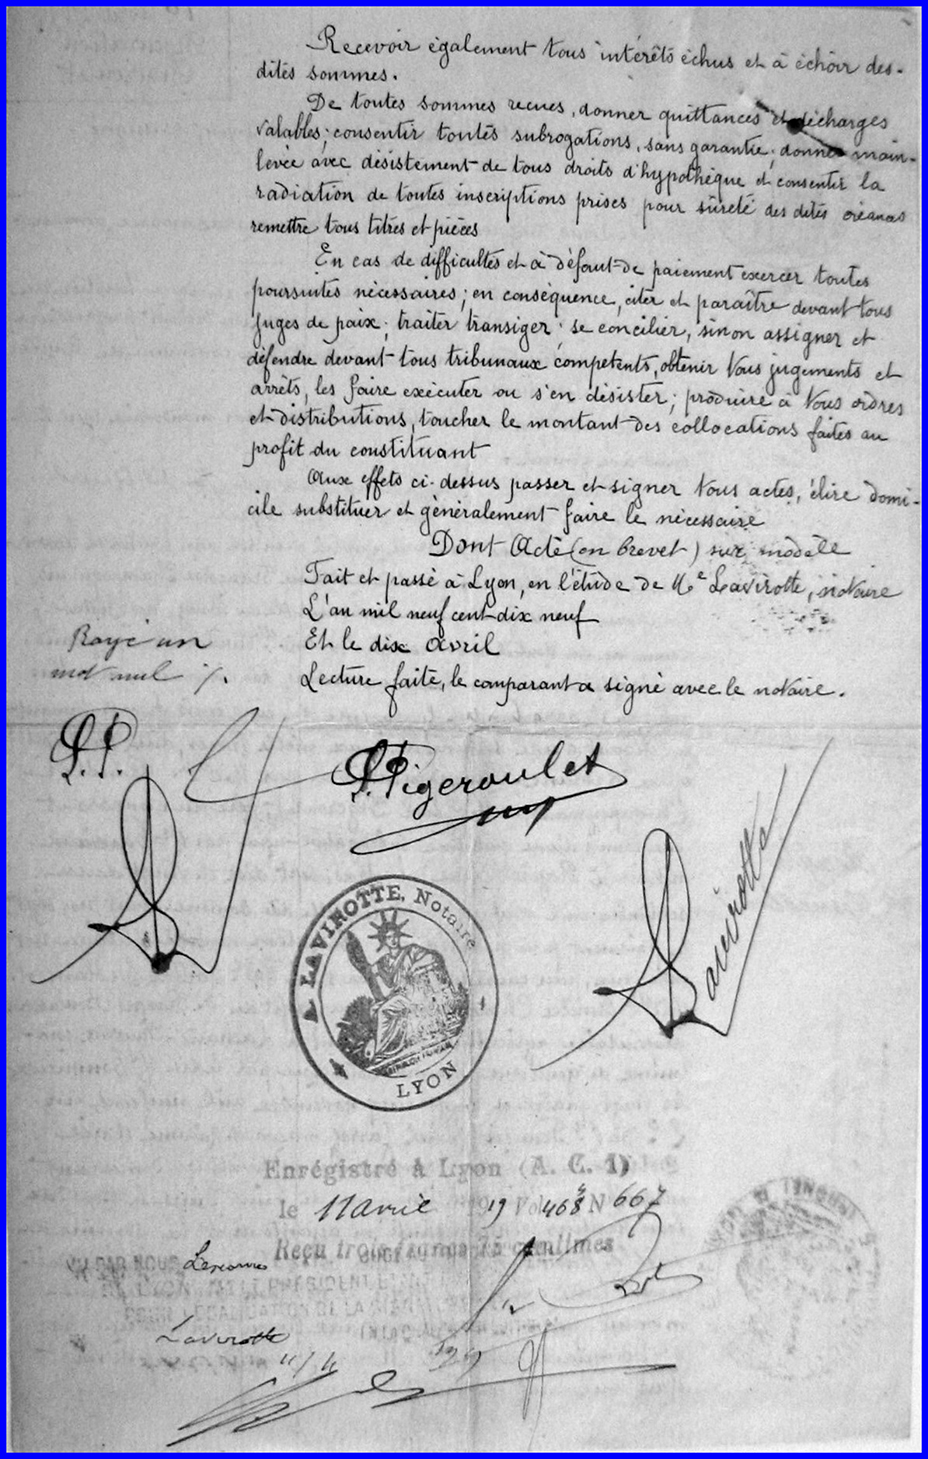 Recevoir également tous intérêts échus et à échoir des-
dites sommes.
De toutes sommes reçues, donner quittances et décharges
valables; consentir toutes subrogations, sans garantie; donner main-
levée avec désistement de tous droits d'hypothèque et consentir la
radiation de toutes inscriptions prises pour sûreté des dites créances
remettre tous titres et pièces
En cas de difficultés et à défaut de paiement exercer toutes
poursuites nécessaires; en conséquence, citer et paraître devant tous
juges de paix; traiter transiger; se concilier, sinon assigner et
défendre devant tous tribunaux compétents, obtenir tous jugements et
arrêts, les faire exécuter ou s'en désister; produire à tous ordres
et distributions, toucher le montant des collocations faites au
profit du constituant
Aux effets ci-dessus passer et signer tous actes, élire domi-
cile substituer et généralement faire le nécessaire
Dont Acte (en brevet) sur modèle
Fait et passé à Lyon, en l'étude de Me Lavirotte, notaire
L'an mil neuf cent dix neuf
Et le dix avril
Rayé un
mot nul
Lecture faite, le comparant a signé avec le notaire.
P.P.
P. Pigeroulet
Lavirotte
A. LAVIROTTE, Notaire
LYON
Enrégistré à Lyon (A. C. 1)
le 11 avril 19 Vol 468 N 667
Reçu trois francs 75 centimes
VU PAR NOUS
Lavirotte
11/4